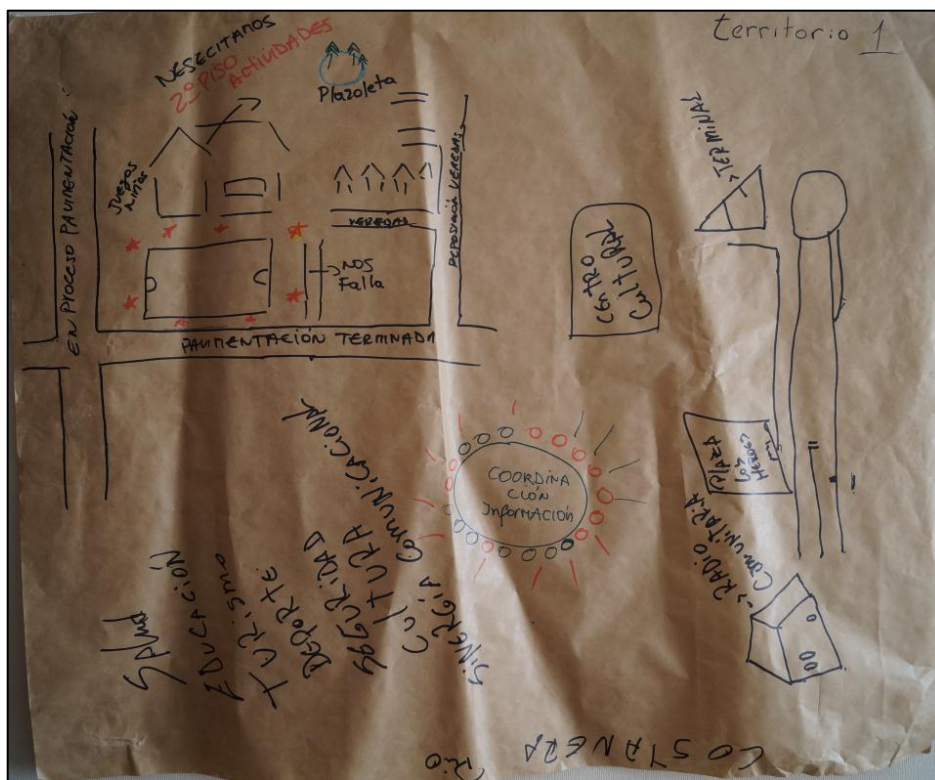 Territorio 1
NESECITAMOS
2º PISO
ACTIVIDADES
Plazoleta
EN PROCESO PAVIMENTACIÓN
Juegos
niños
VEREDAS
REPOSICIÓN VEREDAS
NOS
Falla
PAVIMENTACIÓN TERMINADA
TERMINAL
CENTRO
CULTURAL
PLAZA
LOS
HEROES
RADIO
COMUNITARIA
COORDINA
CIÓN
INFORMACIÓN
Salud
EDUCACIÓN
TURISMO
DEPORTE
SEGURIDAD
CULTURA
SINERGIA COMUNICACIONAL
COSTANERA
RIO